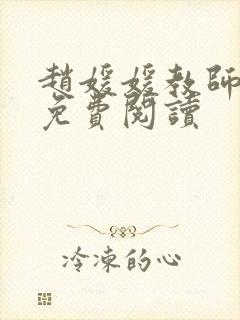 趙媛媛教師
免費閱讀
冷凍的心